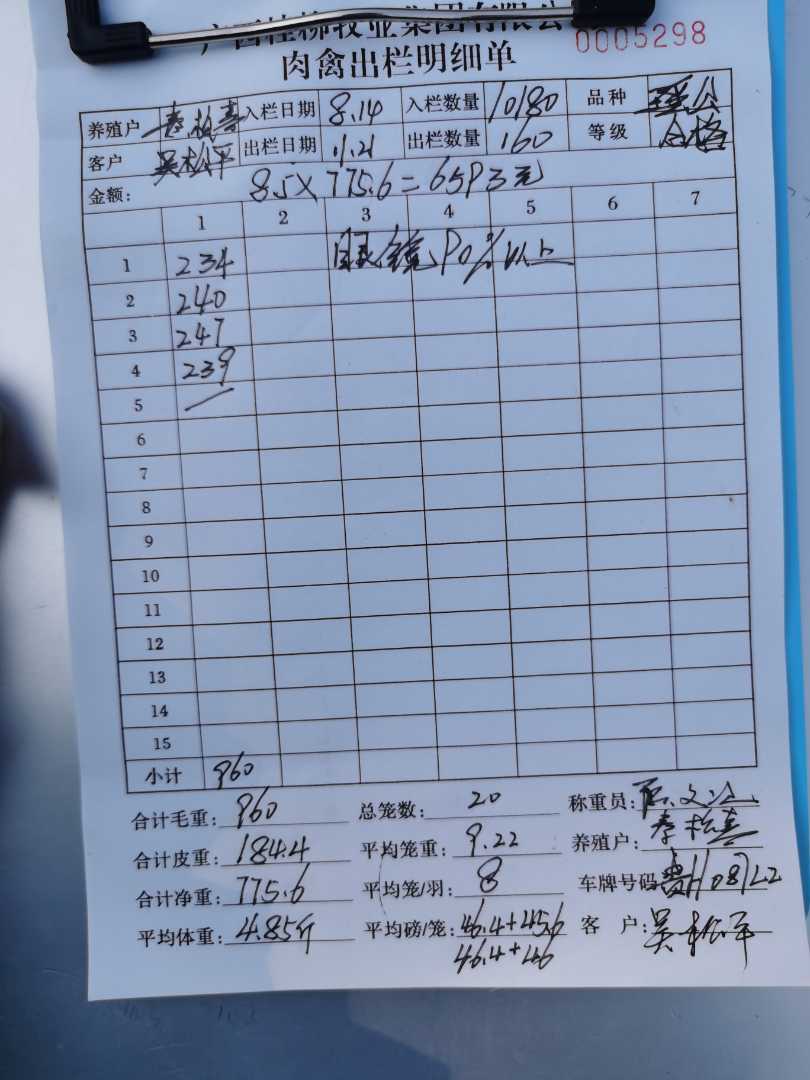 广西桂柳牧业集团有限公
0005298
肉禽出栏明细单
养殖户 秦松喜 入栏日期 8.14 入栏数量 10180 品种 瑶公
客户 吴松平 出栏日期 11.21 出栏数量 160 等级 合格
金额: 8.5×775.6=6593元
1 2 3 4 5 6 7
1 234 眼镜90%以上
2 240
3 247
4 239
5
6
7
8
9
10
11
12
13
14
15
小计 960
合计毛重: 960 总笼数: 20 称重员:
合计皮重: 184.4 平均笼重: 9.22 养殖户: 秦松喜
合计净重: 775.6 平均笼/羽: 8 车牌号码
平均体重: 4.85斤 平均磅/笼: 46.4+45.6 客户: 吴松平
46.4+46